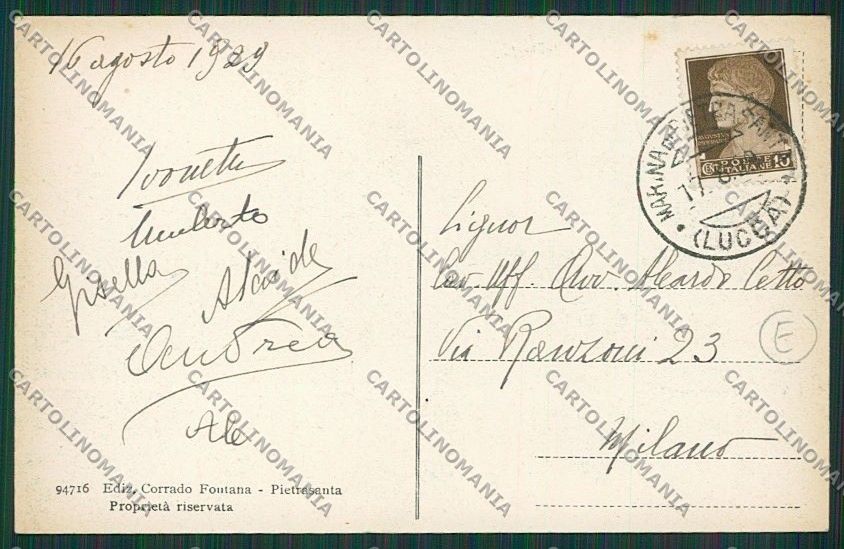 16 agosto 1929
Ivonette
Umberto
Gisella
Alcide
Andrea
Ale
94716 Ediz. Corrado Fontana - Pietrasanta
Proprietà riservata
MARINA DI PIETRASANTA
17. 8.
(LUCCA)
POSTE
CENT. 15
ITALIANE
Signor
Cav. Uff. Avv. Alcardo Cetto
Via Ranzoni 23
E
Milano
CARTOLINOMANIA